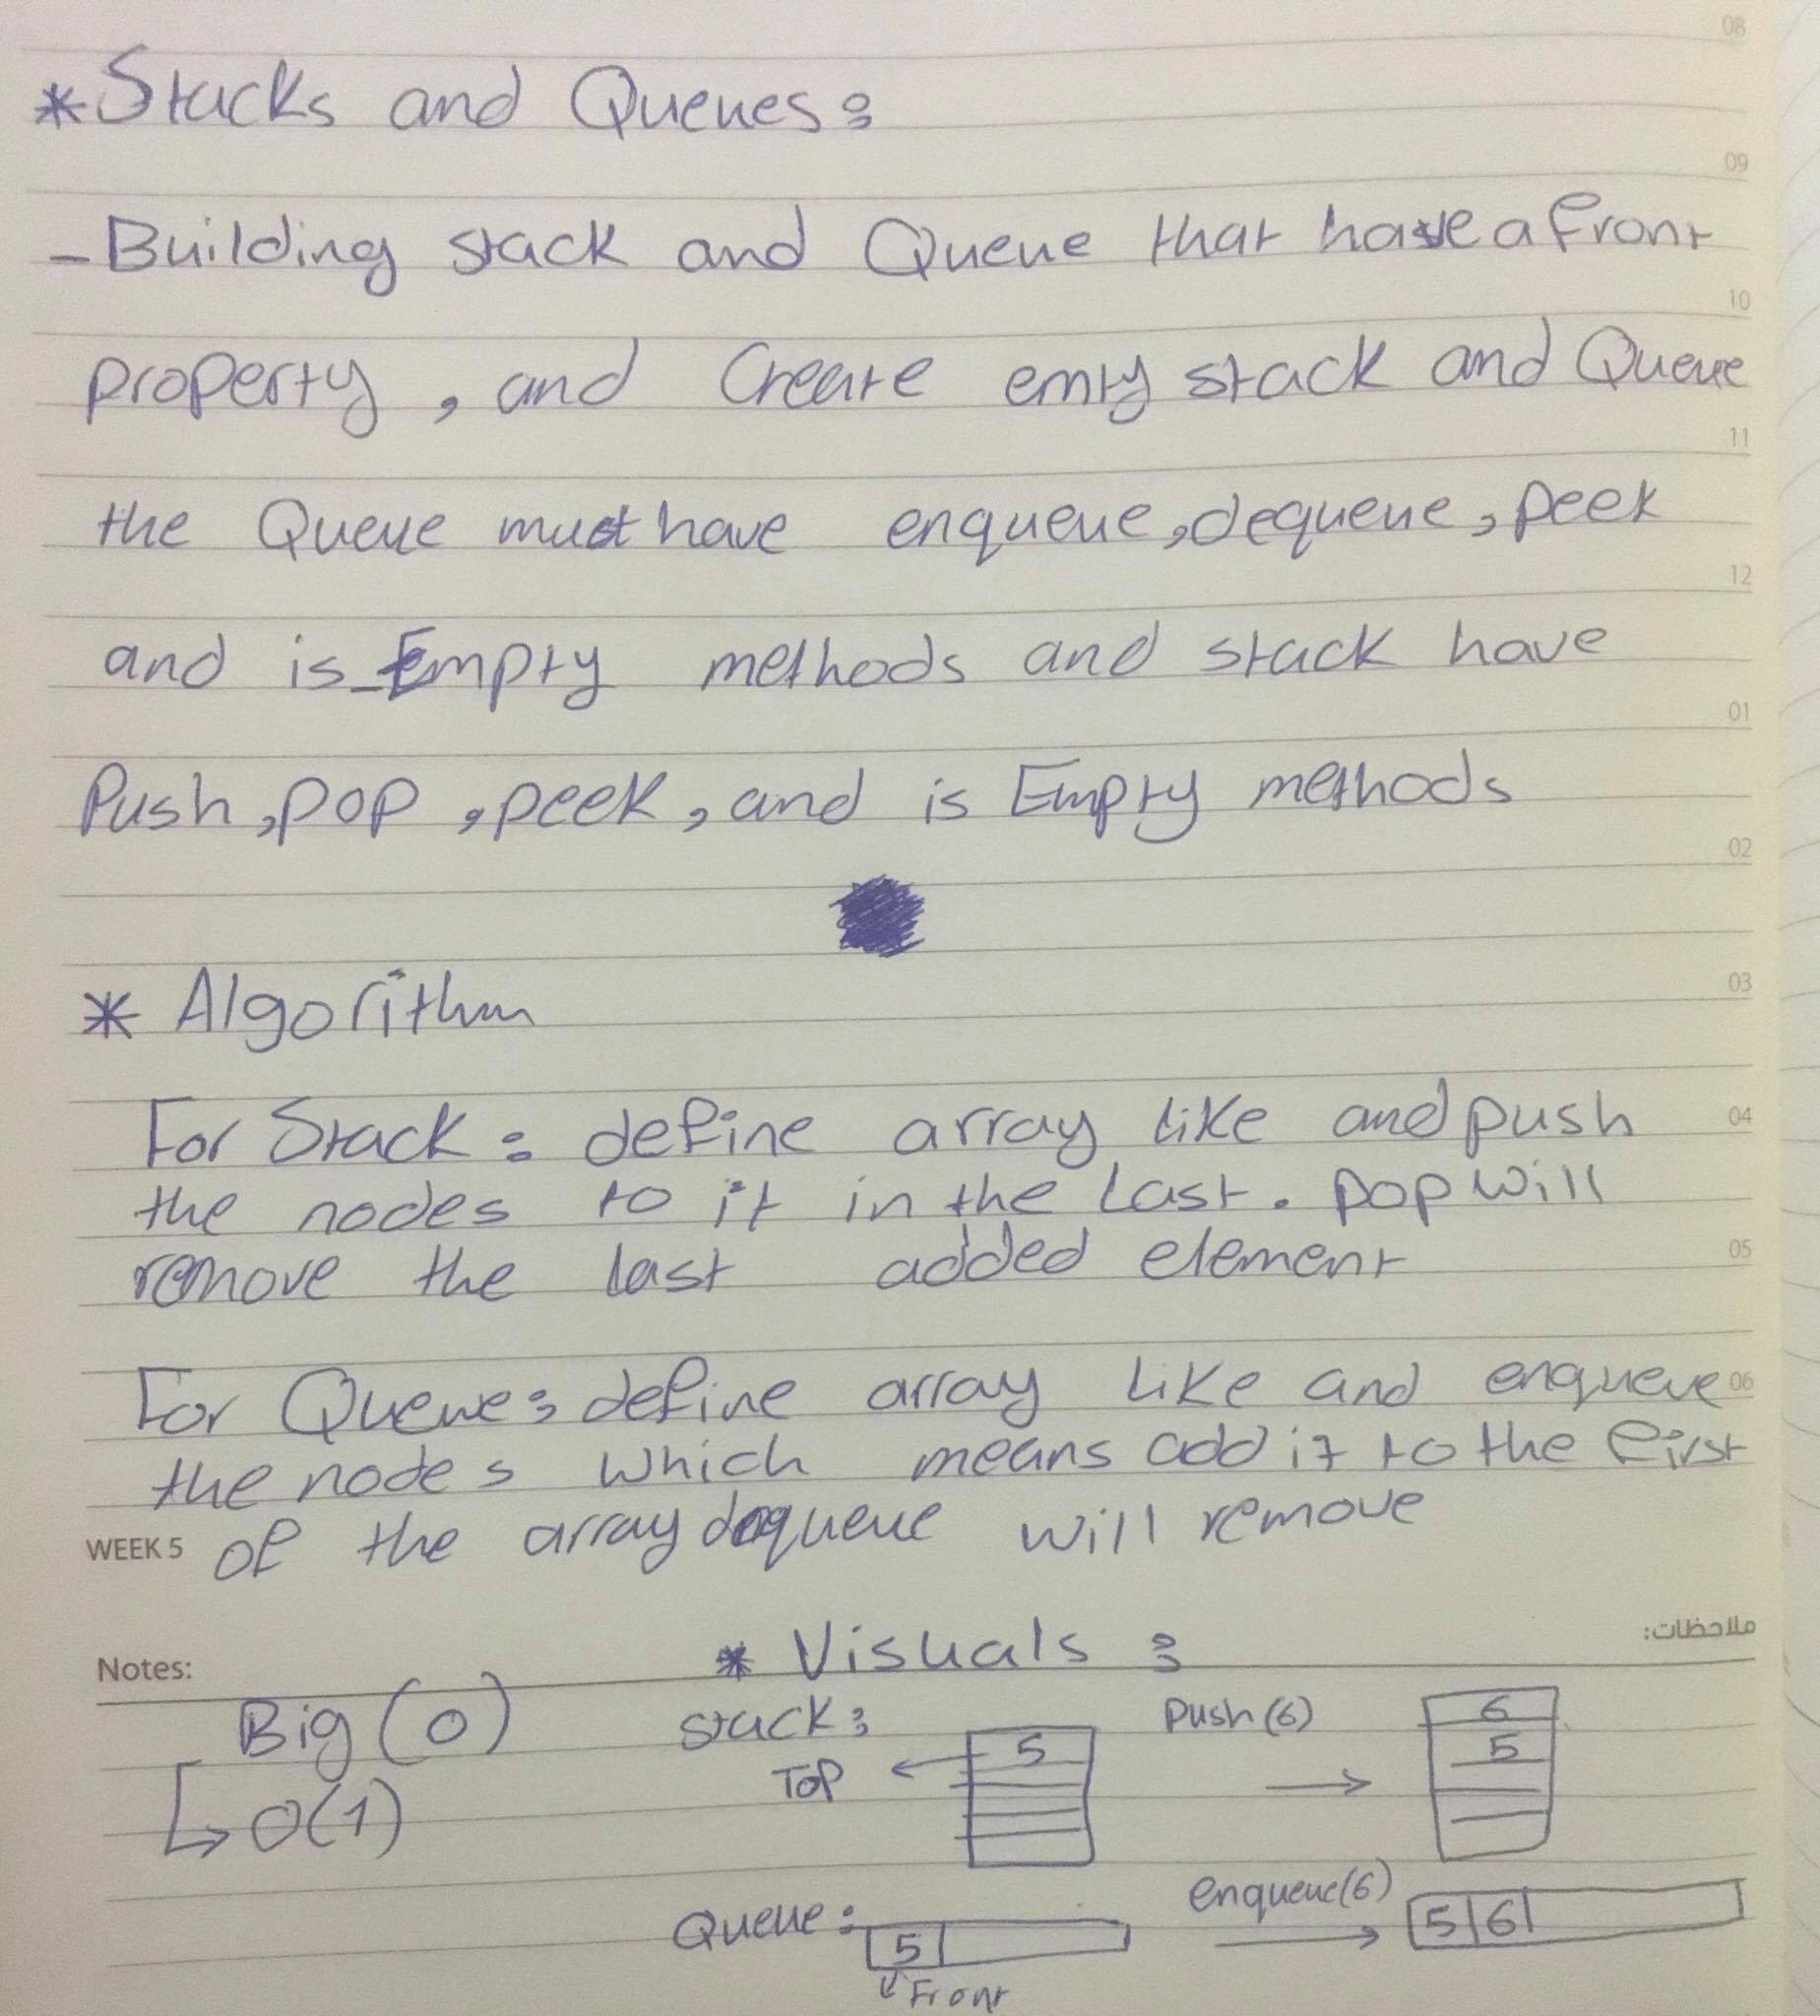 08
*Stacks and Queues:
09
- Building stack and Queue that have a front
10
property, and Create emty stack and Queue
11
the Queue must have enqueue, dequeue, peek
12
and is_Empty methods and stack have
01
Push, pop, peek, and is Empty methods
02
* Algorithm
03
For Stack: define array like and push
04
the nodes to it in the Last. pop will
remove the last added element
05
For Queue: define array like and enqueue
06
the nodes which means add it to the first
of the array dequeue will remove
WEEK 5
Notes:
ملاحظات:
* Visuals:
Big (O)
O(1)
stack:
5
TOP
Push (6)
6
5
Queue:
5
Front
enqueue(6)
5 | 6